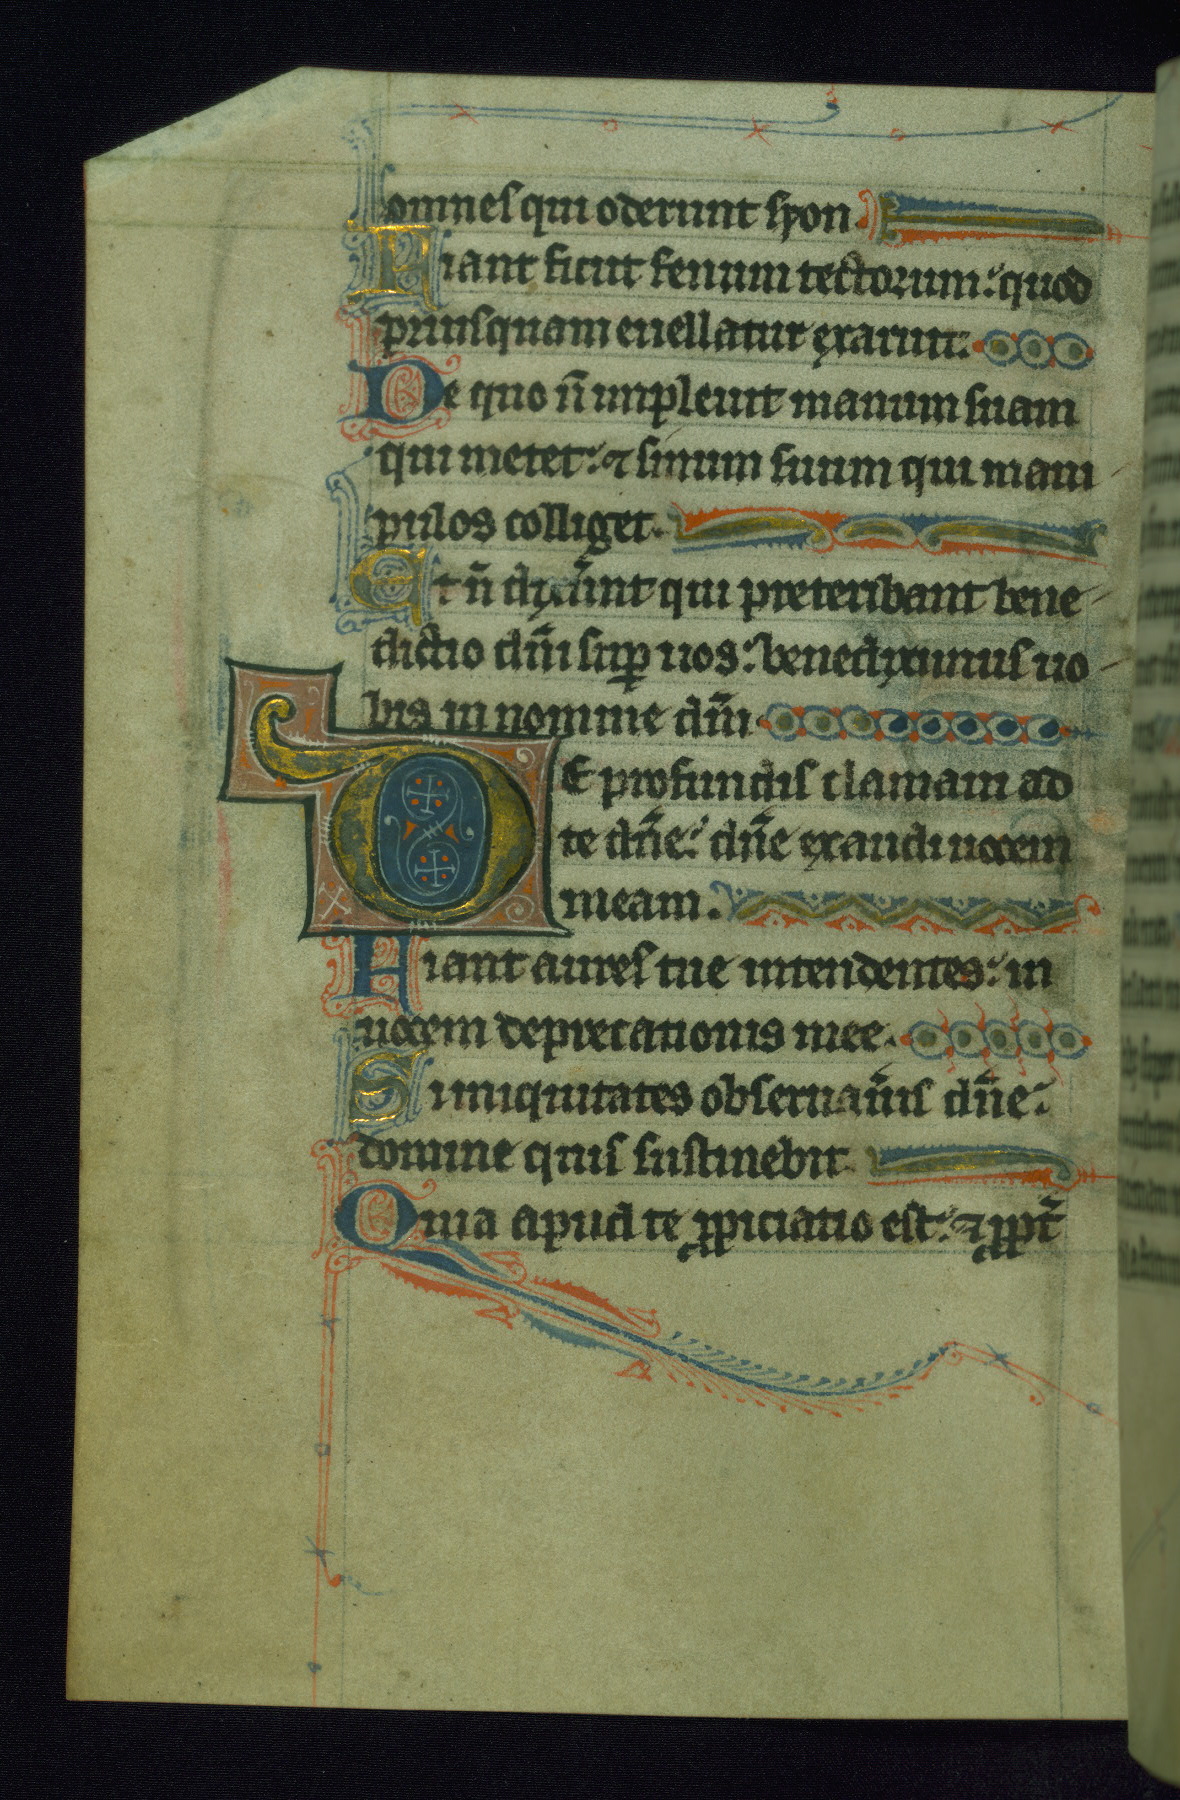 omnes qui oderunt syon.
Fiant sicut fenum tectorum: quod
priusquam euellatur exaruit.
De quo n̄ impleuit manum suam
qui metet: ⁊ sinum suum qui mani
pulos colliget.
Et n̄ dix̾unt qui preteribant bene
dictio dn̄i sup̲ uos: benediximus uo
bis in nomine dn̄i
DE profundis clamaui ad
te dn̄e: dn̄e exaudi uocem
meam.
Fiant aures tue intendentes: in
uocem deprecationis mee.
Si iniquitates obseruau̾is dn̄e:
domine quis sustinebit
Quia apud te ꝓpiciatio est: ⁊ ꝓpt̾